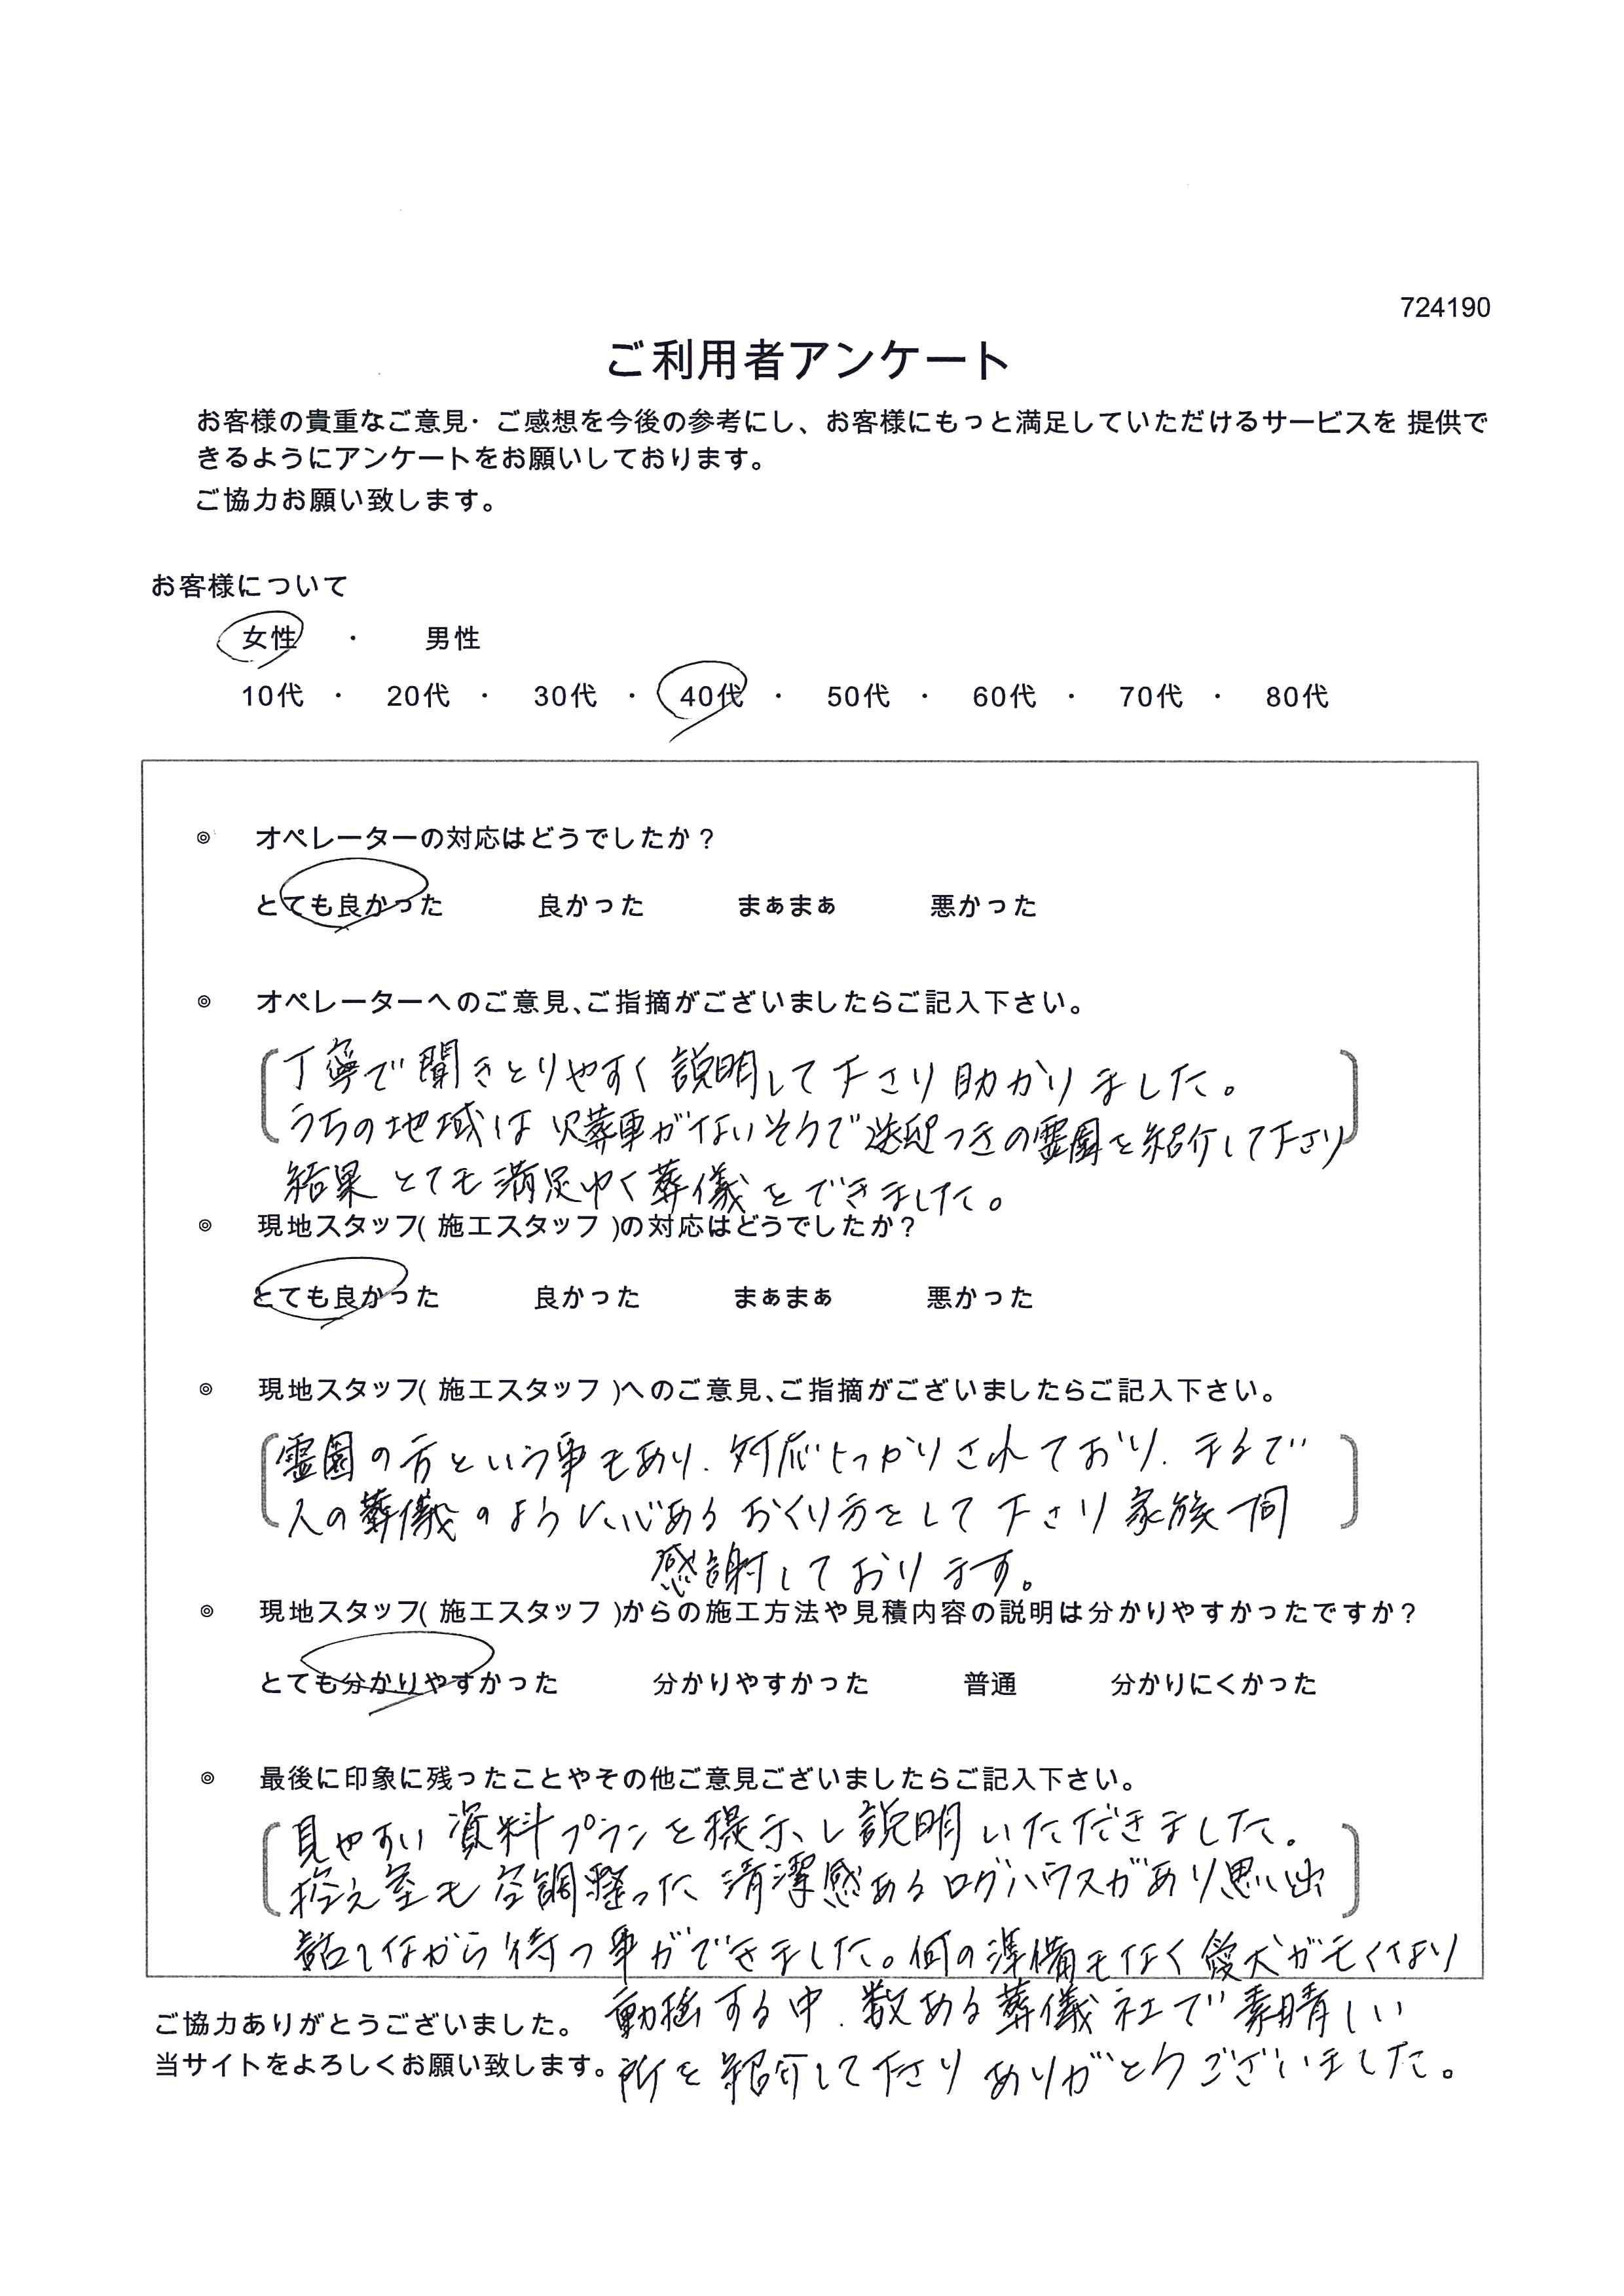 724190
ご利用者アンケート
お客様の貴重なご意見・ご感想を今後の参考にし、お客様にもっと満足していただけるサービスを 提供で
きるようにアンケートをお願いしております。
ご協力お願い致します。
お客様について
女性 ・ 男性
10代 ・ 20代 ・ 30代 ・ 40代 ・ 50代 ・ 60代 ・ 70代 ・ 80代
◎ オペレーターの対応はどうでしたか？
とても良かった 良かった まぁまぁ 悪かった
◎ オペレーターへのご意見、ご指摘がございましたらご記入下さい。
丁寧で聞きとりやすく説明して下さり助かりました。
うちの地域は火葬車がないそうで送迎つきの霊園を紹介して下さり
結果とても満足ゆく葬儀をできました。
◎ 現地スタッフ( 施工スタッフ )の対応はどうでしたか？
とても良かった 良かった まぁまぁ 悪かった
◎ 現地スタッフ( 施工スタッフ )へのご意見、ご指摘がございましたらご記入下さい。
霊園の方という事もあり、対応しっかりされており、まるで
人の葬儀のように心あるおくり方をして下さり家族一同
感謝しております。
◎ 現地スタッフ( 施工スタッフ )からの施工方法や見積内容の説明は分かりやすかったですか？
とても分かりやすかった 分かりやすかった 普通 分かりにくかった
◎ 最後に印象に残ったことやその他ご意見ございましたらご記入下さい。
見やすい資料プランを提示し説明いただきました。
控え室も空調整った清潔感あるログハウスがあり思い出
話しながら待つ事ができました。何の準備もなく愛犬が亡くなり
動揺する中、数ある葬儀社で素晴しい
所を紹介して下さりありがとうございました。
ご協力ありがとうございました。
当サイトをよろしくお願い致します。